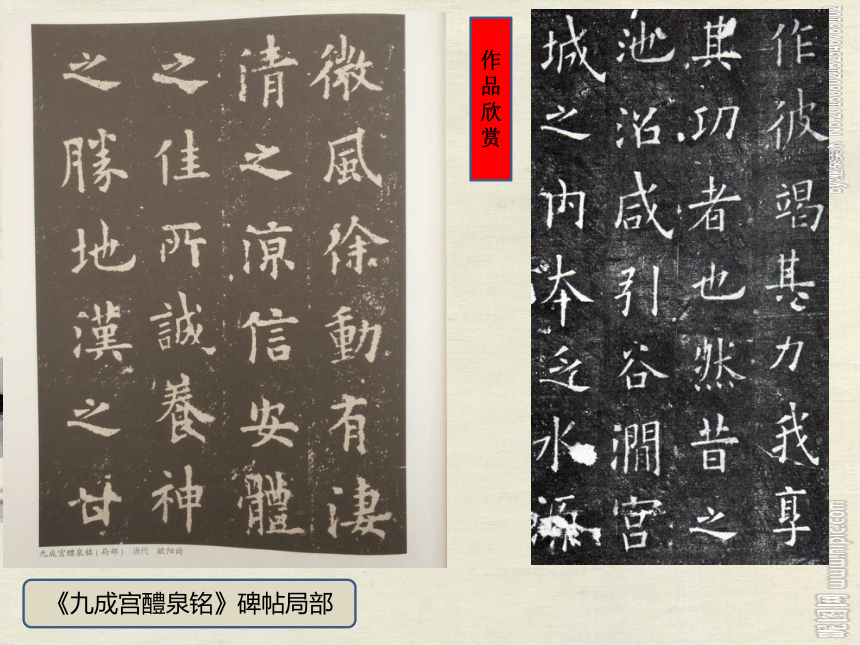 微風徐動有淒
清之涼信安體
之佳所誠養神
之勝地漢之甘
九成宫醴泉銘（局部） 唐代 歐陽詢
作品欣赏
作彼竭其力我享
其功者也然昔之
池沼咸引谷澗宮
城之内本乏水源
《九成宫醴泉铭》碑帖局部
昵图网 www.nipic.com